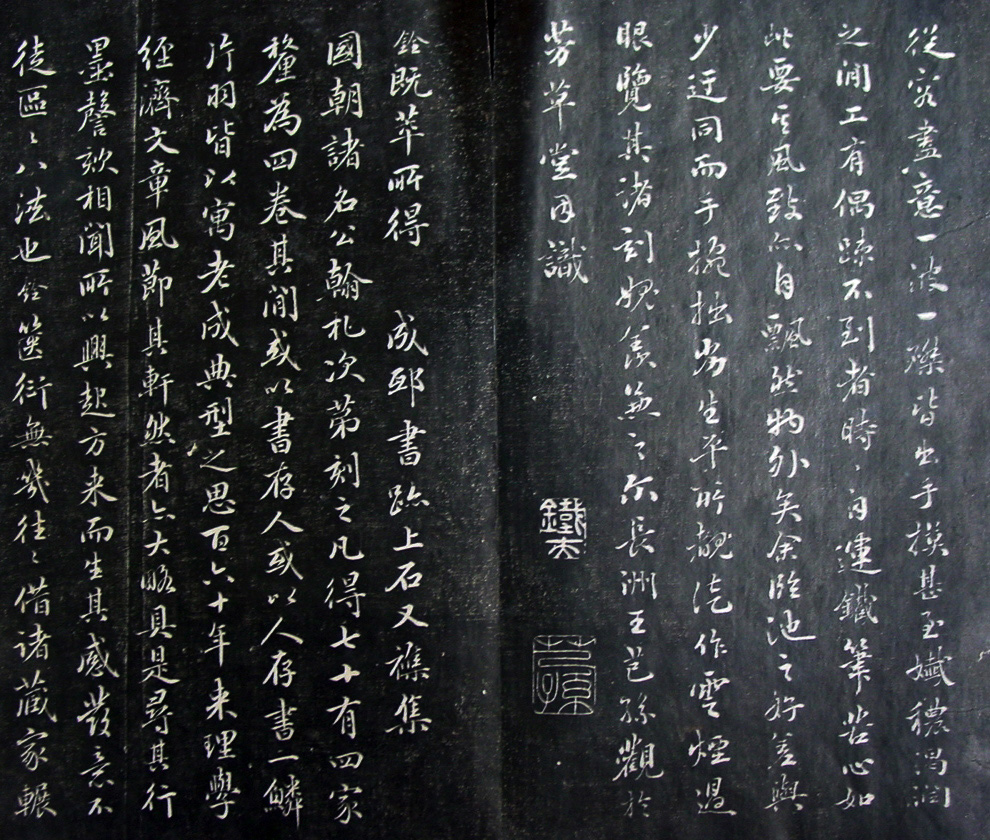 從容盡意一波一磔皆出手摸甚至孅穠渴潤
之間工有偶疎不到者時〻自運鐵筆苦心如
此要其風致亦自飄然物外矣余臨池之好差與
少迂同而手拙劣生平所覩徒作雲煙過
眼覽其諸刻媿羨兼之尔長洲王芑孫觀於
芳草堂因識
鐵夫
芑孫
銓既萃所得 成邸書跡上石又襍集
國朝諸名公翰札次第刻之凡得七十有四家
釐為四卷其間或以書存人或以人存書一鱗
片羽皆以寓老成典型之思百六十年来理學
經濟文章風節其軒然者亦大略具是尋其行
墨謦欬相聞所以興起方来而生其感發意不
徒區〻八法也銓篋衍無幾往〻借諸藏家輾